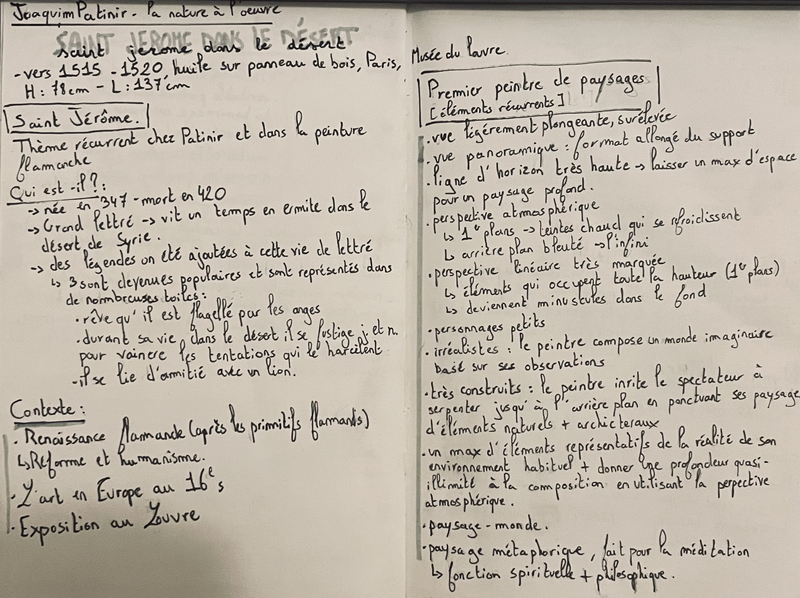 Joaquim Patinir - La nature à l'oeuvre
SAINT JEROME DANS LE DÉSERT
saint jerome dans le désert
- vers 1515 - 1520 huile sur panneau de bois, Paris,
H : 78cm - L : 137cm
Saint Jérôme.
Thème récurrent chez Patinir et dans la peinture
flamanche
Qui est-il ? :
→ née en 347 - mort en 420
→ Grand lettré → vit un temps en ermite dans le
désert de Syrie.
→ des légendes on été ajoutées à cette vie de lettré
↳ 3 sont devenues populaires et sont représentés dans
de nombreuses toiles :
• rêve qu'il est flagellé par les anges
• durant sa vie dans le désert il se fustige j. et n.
pour vaincre les tentations qui le harcèlent
- il se lie d'armitié avec un lion.
Contexte :
• Renaissance flamande (après les primitifs flamands)
↳ Réforme et humanisme.
• L'art en Europe au 16e s
• Exposition au Louvre
Musée du Louvre.
Premier peintre de paysages
[éléments récurrents]
• vue légèrement plongeante, surélevée
• vue panoramique : format allongé du support
• ligne d'horizon très haute → laisser un max d'espace
pour un paysage profond.
• perspective atmosphérique
↳ 1er plans → teintes chaud qui se refroidissent
↳ arrière plan bleuté → l'infini
• perspective linéaire très marquée
↳ éléments qui occupent toute la hauteur (1er plans)
↳ deviennent minuscules dans le fond
• personnages petits
• irréalistes : le peintre compose un monde imaginaire
basé sur ses observations
• très construits : le peintre invite le spectateur à
serpenter jusqu'à l'arrière plan en ponctuant ses paysage
d'éléments naturels + archicteraux
• un max d'éléments représentatifs de la réalité de son
environnement habituel + donner une profondeur quasi-
illimité à la composition en utilisant la perpective
atmosphérique.
• paysage - monde.
• paysage métaphorique, fait pour la méditation
↳ fonction spirituelle + philosophique.